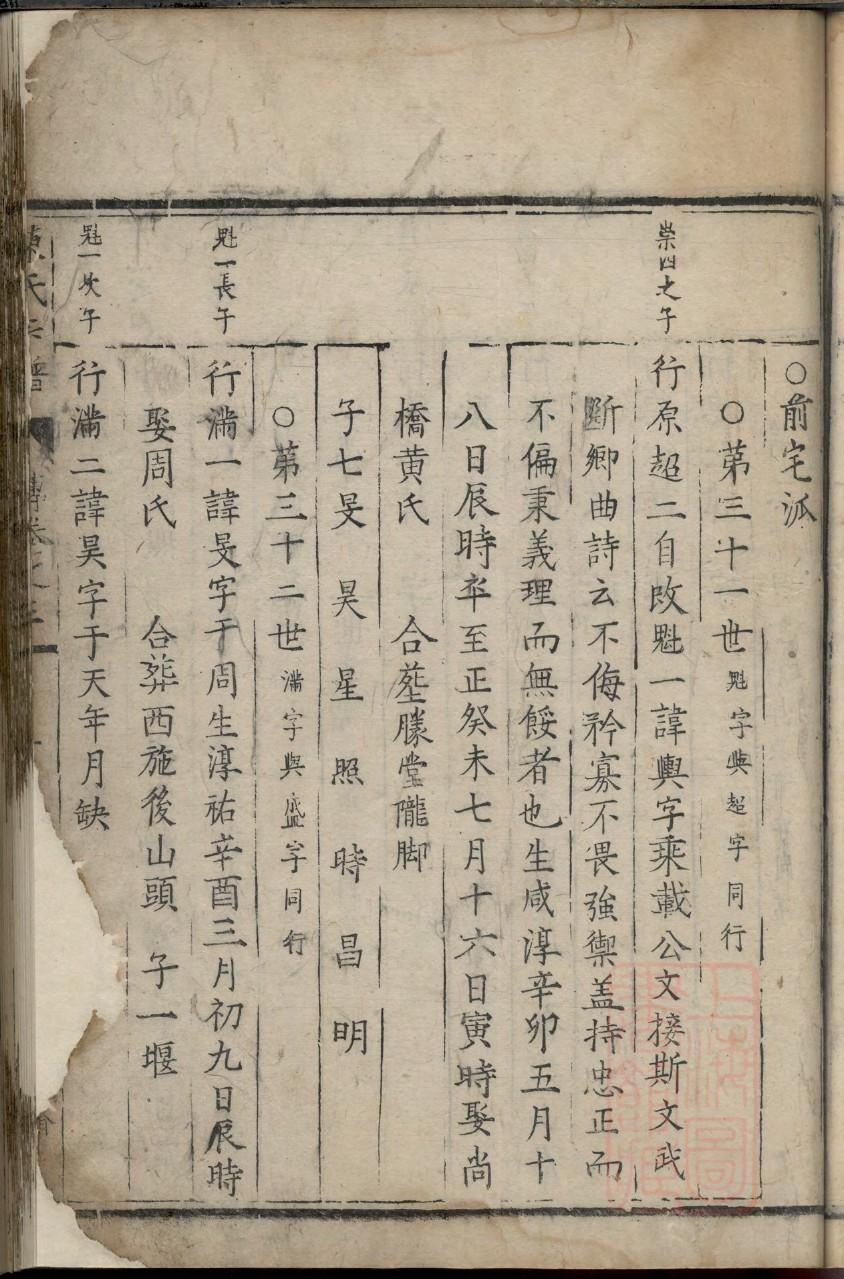 ○前宅派
○第三十一世 魁字與超字同行
崇四之子
行原超二自改魁一諱輿字乘載公文接斯文武
斷鄉曲詩云不侮矜寡不畏強禦盖持忠正而
不偏秉義理而無餒者也生咸淳辛卯五月十
八日辰時卒至正癸未七月十六日寅時娶尚
橋黄氏 合塟塍堂隴脚
子七旻 昊 星 照 時 昌 明
○第三十二世 滿字與盛字同行
魁一長子
行滿一諱旻字于周生淳祐辛酉三月初九日辰時
娶周氏 合葬西施後山頭 子一堰
魁一次子
行滿二諱昊字于天年月缺
陳氏宗譜 傳卷之